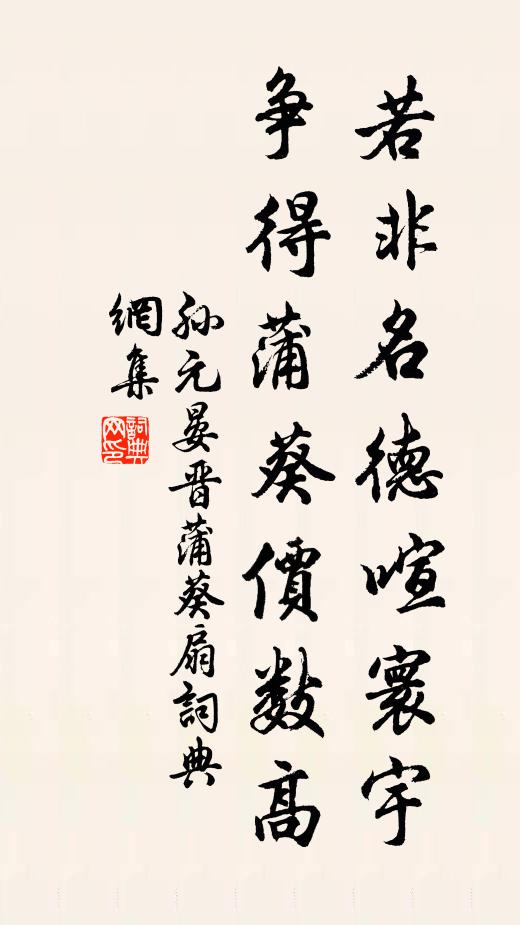 若非名德喧寰宇
争得蒲葵價数高
孙元晏晋蒲葵扇詞典
網集
詞典网印